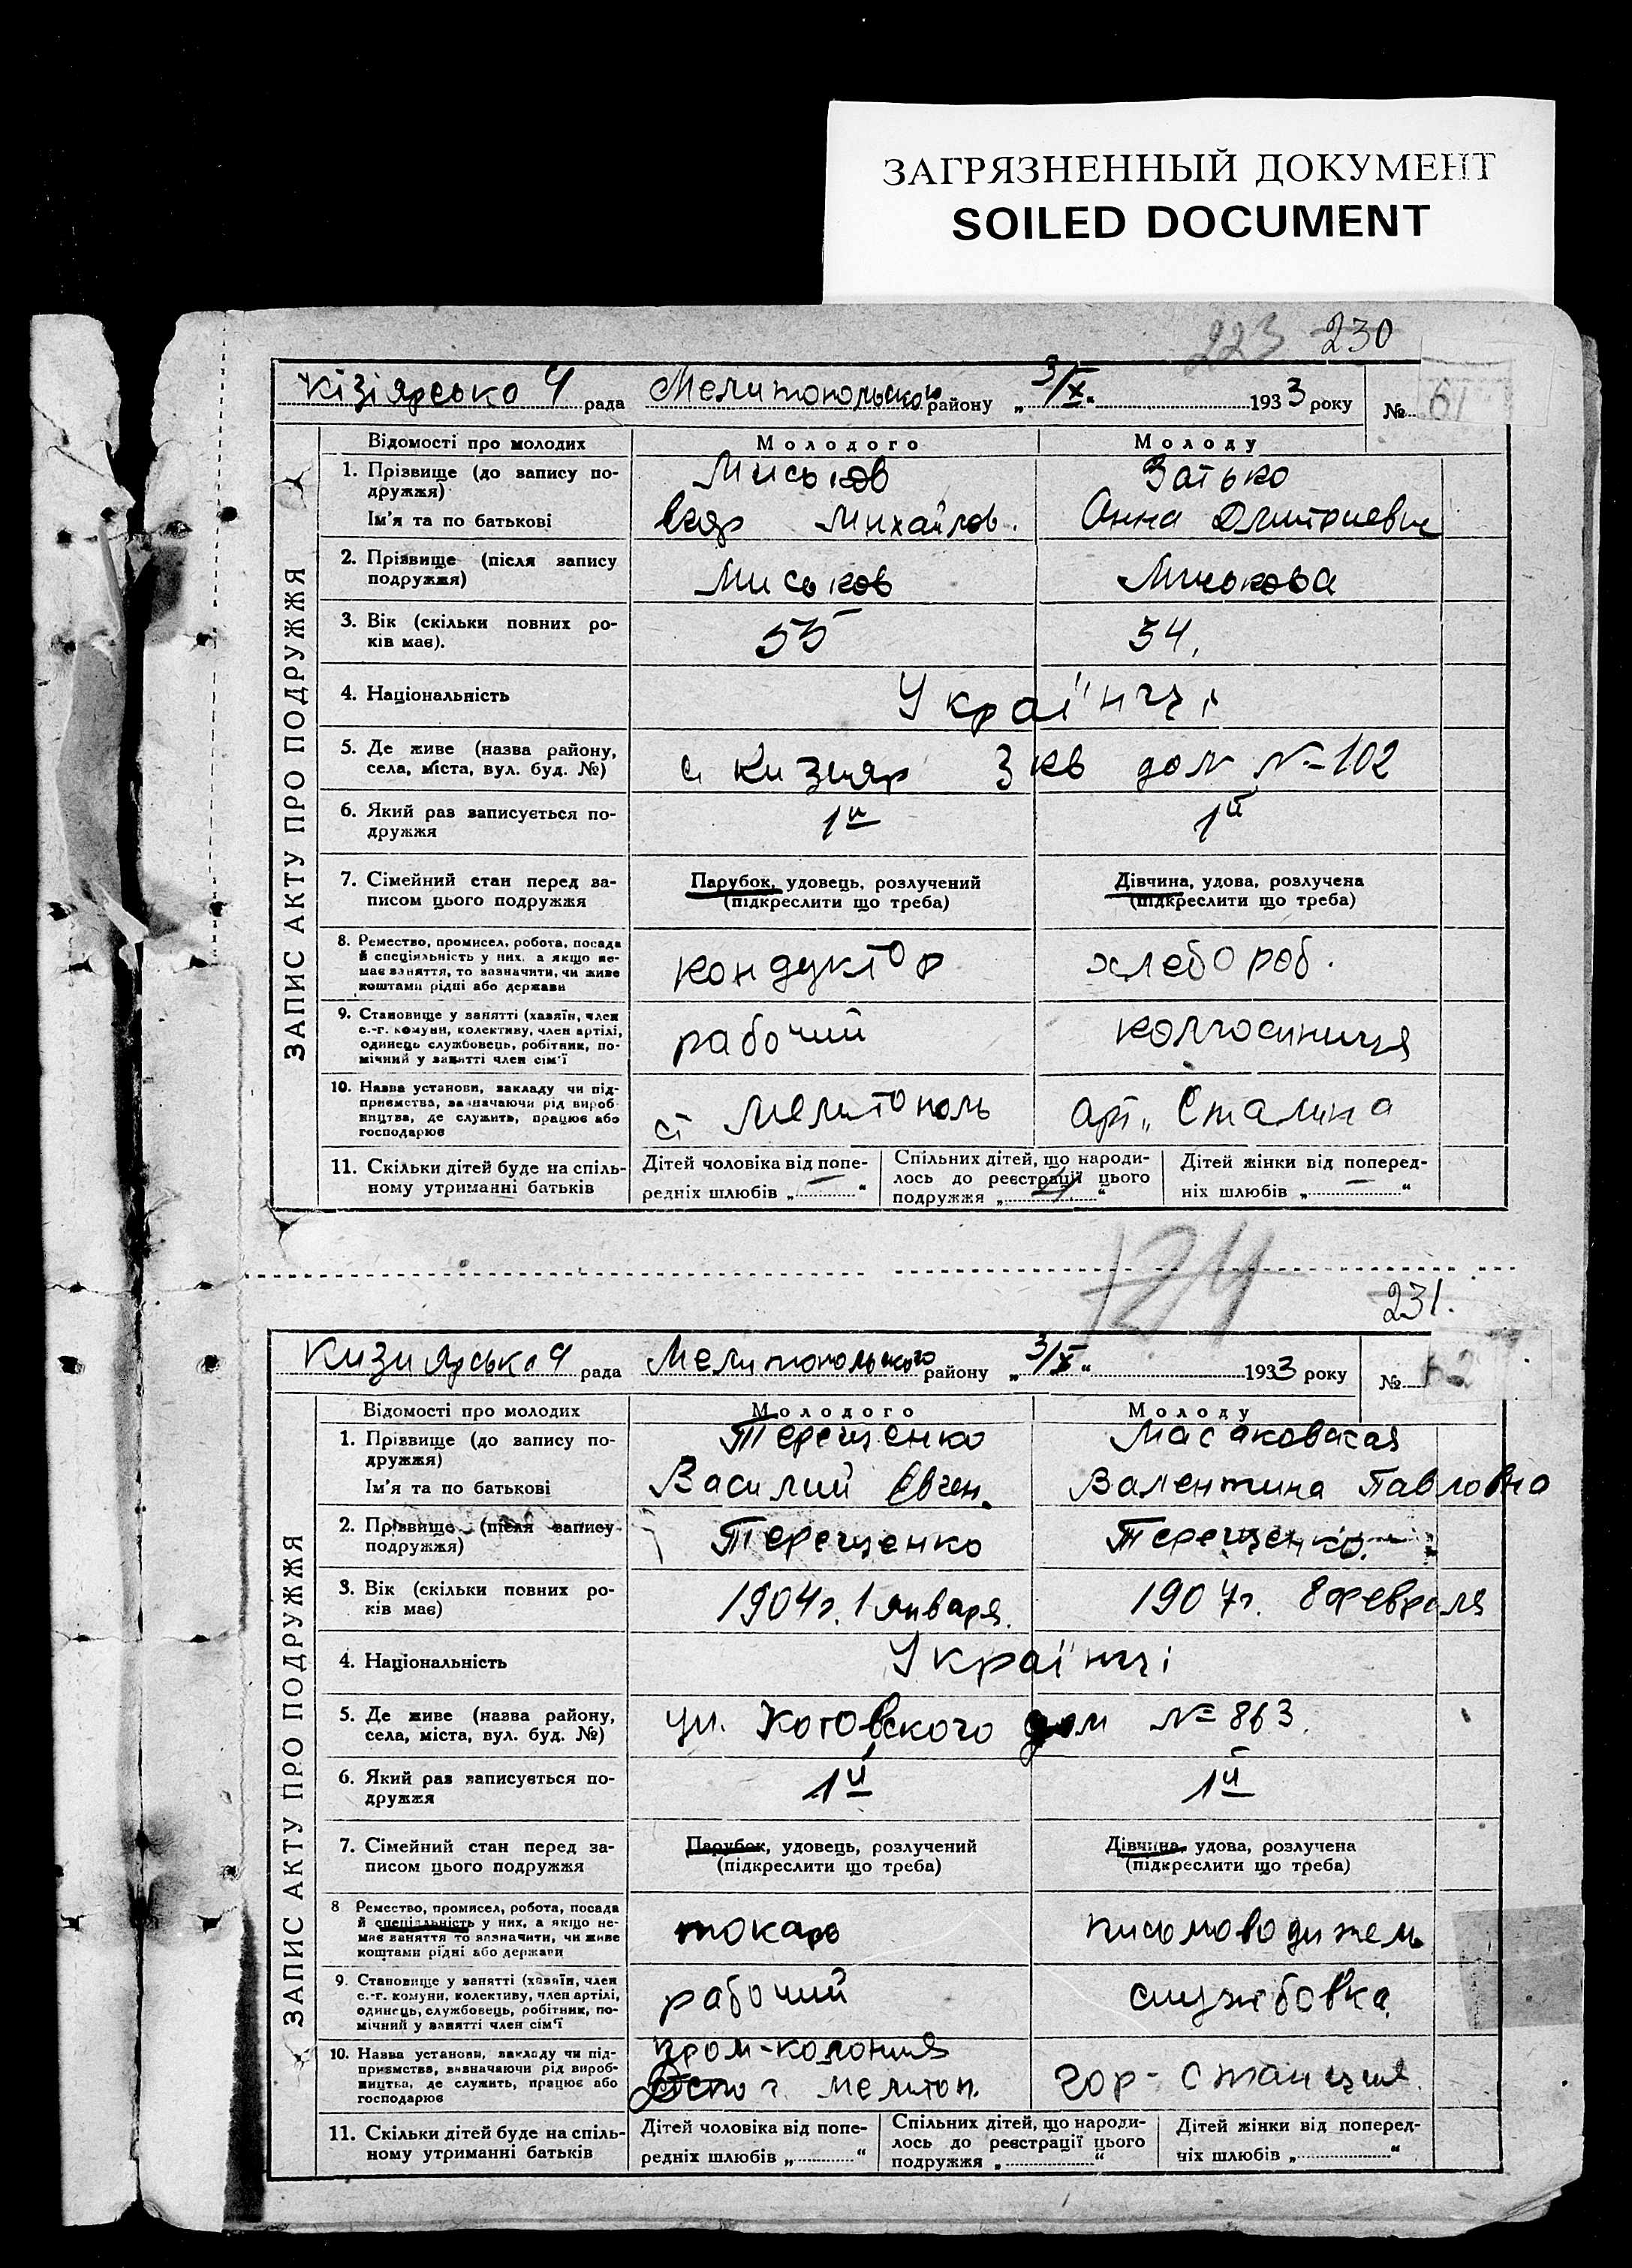 ЗАГРЯЗНЕННЫЙ ДОКУМЕНТ
SOILED DOCUMENT
223 230
Кізіярсько Ч рада Мелитопольского району „3/X“ 1933 року № 61
ЗАПИС АКТУ ПРО ПОДРУЖЖЯ
Відомості про молодих Молодого Молоду
1. Прізвище (до запису по- Миськов Затько
дружжя)
Ім'я та по батькові Михайлов. Анна Дмитриевн
2. Прізвище (після запису Миськов Миськова
подружжя)
3. Вік (скільки повних ро-
ків має).
4. Національність Українці
5. Де живе (назва району, с Кизияр 3 кв дом № 102
села, міста, вул. буд. №)
6. Який раз записується по- 1й 1й
дружжя
7. Сімейний стан перед за- Парубок, удовець, розлучений Дівчина, удова, розлучена
писом цього подружжя (підкреслити що треба) (підкреслити що треба)
8. Ремество, промисел, робота, посада кондуктор хлебороб.
й спеціяльність у них, а якщо не-
має заняття, то зазначити, чи живе
коштами рідні або держави
9. Становище у занятті (хазяїн, член рабочий колгосниця
с.-г. комуни, колективу, член артілі,
одинець службовець, робітник, по-
мічний у занятті член сім'ї
10. Назва установи, закладу чи під- ст Мелитополь арт „Сталина
приємства, зазначаючи рід вироб-
ництва, де служить, працює або
господарює
11. Скільки дітей буде на спіль- Дітей чоловіка від попе- Спільних дітей, що народи- Дітей жінки від поперед-
ному утриманні батьків редніх шлюбів „ — “ лось до реєстрації цього ніх шлюбів „ — “
подружжя „ “
231.
Кизиярська Ч рада Мелитопольского району „3/X“ 1933 року № 62
ЗАПИС АКТУ ПРО ПОДРУЖЖЯ
Відомості про молодих Молодого Молоду
1. Прізвище (до запису по- Терещенко Масаковская
дружжя)
Ім'я та по батькові Василий Євген. Валентина Павловна
2. Прізвище (після запису Терещенко Терещенко.
подружжя)
3. Вік (скільки повних ро- 1904г. 1 января. 1907г. 8 февраля
ків має)
4. Національність Українці
5. Де живе (назва району, ул. Котовского дом № 863.
села, міста, вул. буд. №)
6. Який раз записується по- 1й 1й
дружжя
7. Сімейний стан перед за- Парубок, удовець, розлучений Дівчина, удова, розлучена
писом цього подружжя (підкреслити що треба) (підкреслити що треба)
8 Ремество, промисел, робота, посада токарь письмоводитель
й спеціяльність у них, а якщо не-
має заняття то зазначити, чи живе
коштами рідні або держави
9. Становище у занятті (хазяїн, член рабочий службовка
с.-г. комуни, колективу, член артілі,
одинець, службовець, робітник, по-
мічний у занятті член сім'ї
10. Назва установи, закладу чи під- пром-колония
приємства, зазначаючи рід вироб- г. Мелитоп. гор-станция.
ництва, де служить, працює або
господарює
11. Скільки дітей буде на спіль- Дітей чоловіка від попе- Спільних дітей, що народи- Дітей жінки від поперед-
ному утриманні батьків редніх шлюбів „ “ лось до реєстрації цього ніх шлюбів „ “
подружжя „ “